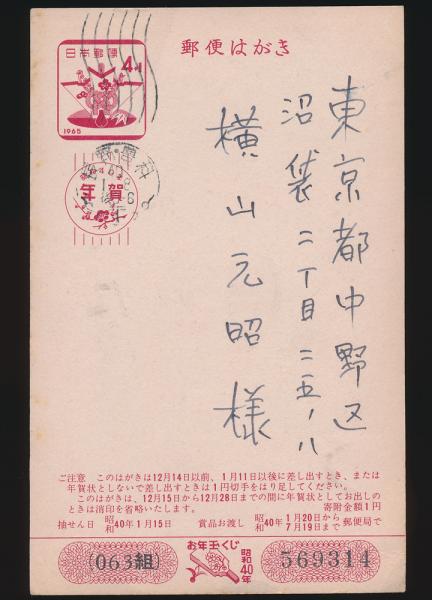 郵便はがき
日本郵便
4
1965
年賀
東京都中野区
沼袋二丁目二五ノ八
横山元昭様
ご注意 このはがきは12月14日以前、1月11日以後に差し出すとき、または
年賀状としないで差し出すときは1円切手をはり足してください。
このはがきは、12月15日から12月28日までの間に年賀状としてお出しの
ときは消印を省略いたします。 寄附金額1円
抽せん日 昭和40年1月15日 賞品お渡し 昭和40年1月20日から7月19日まで郵便局で
お年玉くじ
昭和40年
(063組)
569314